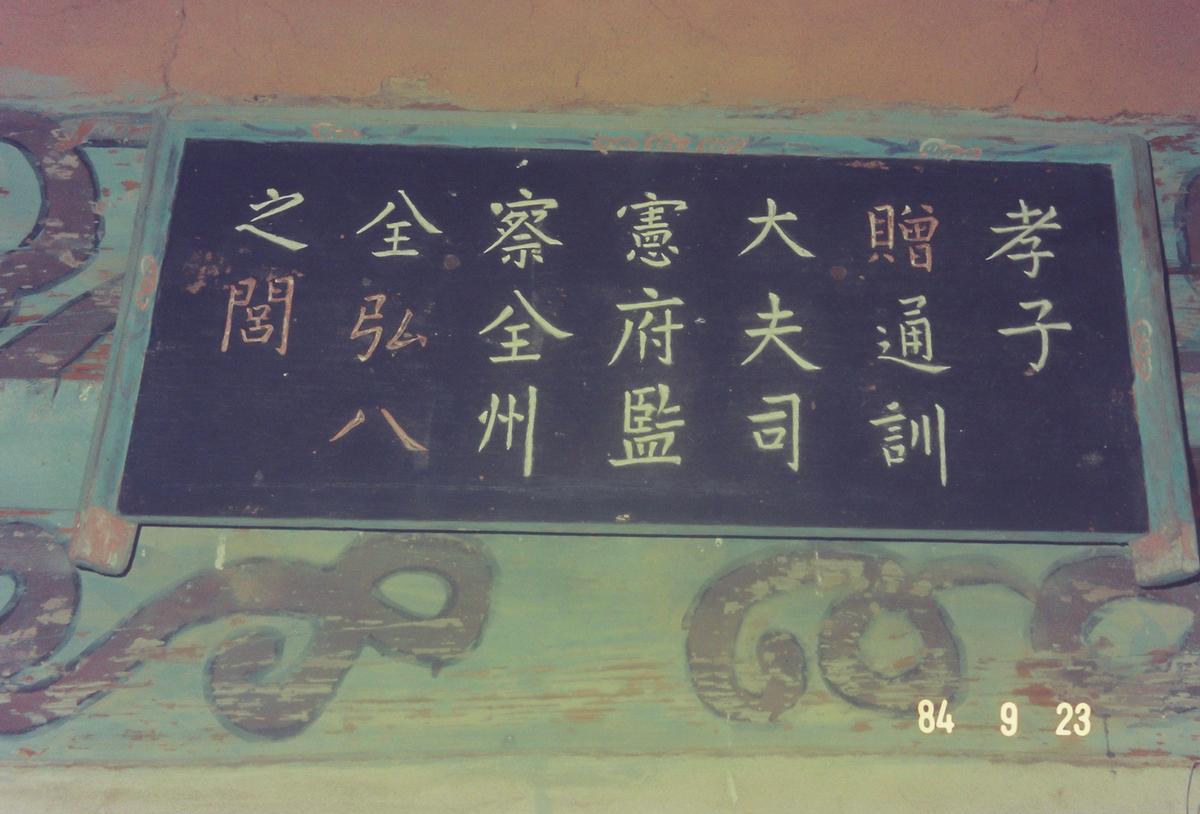 孝子
贈通訓
大夫司
憲府監
察全州
全弘八
之閭
84 9 23